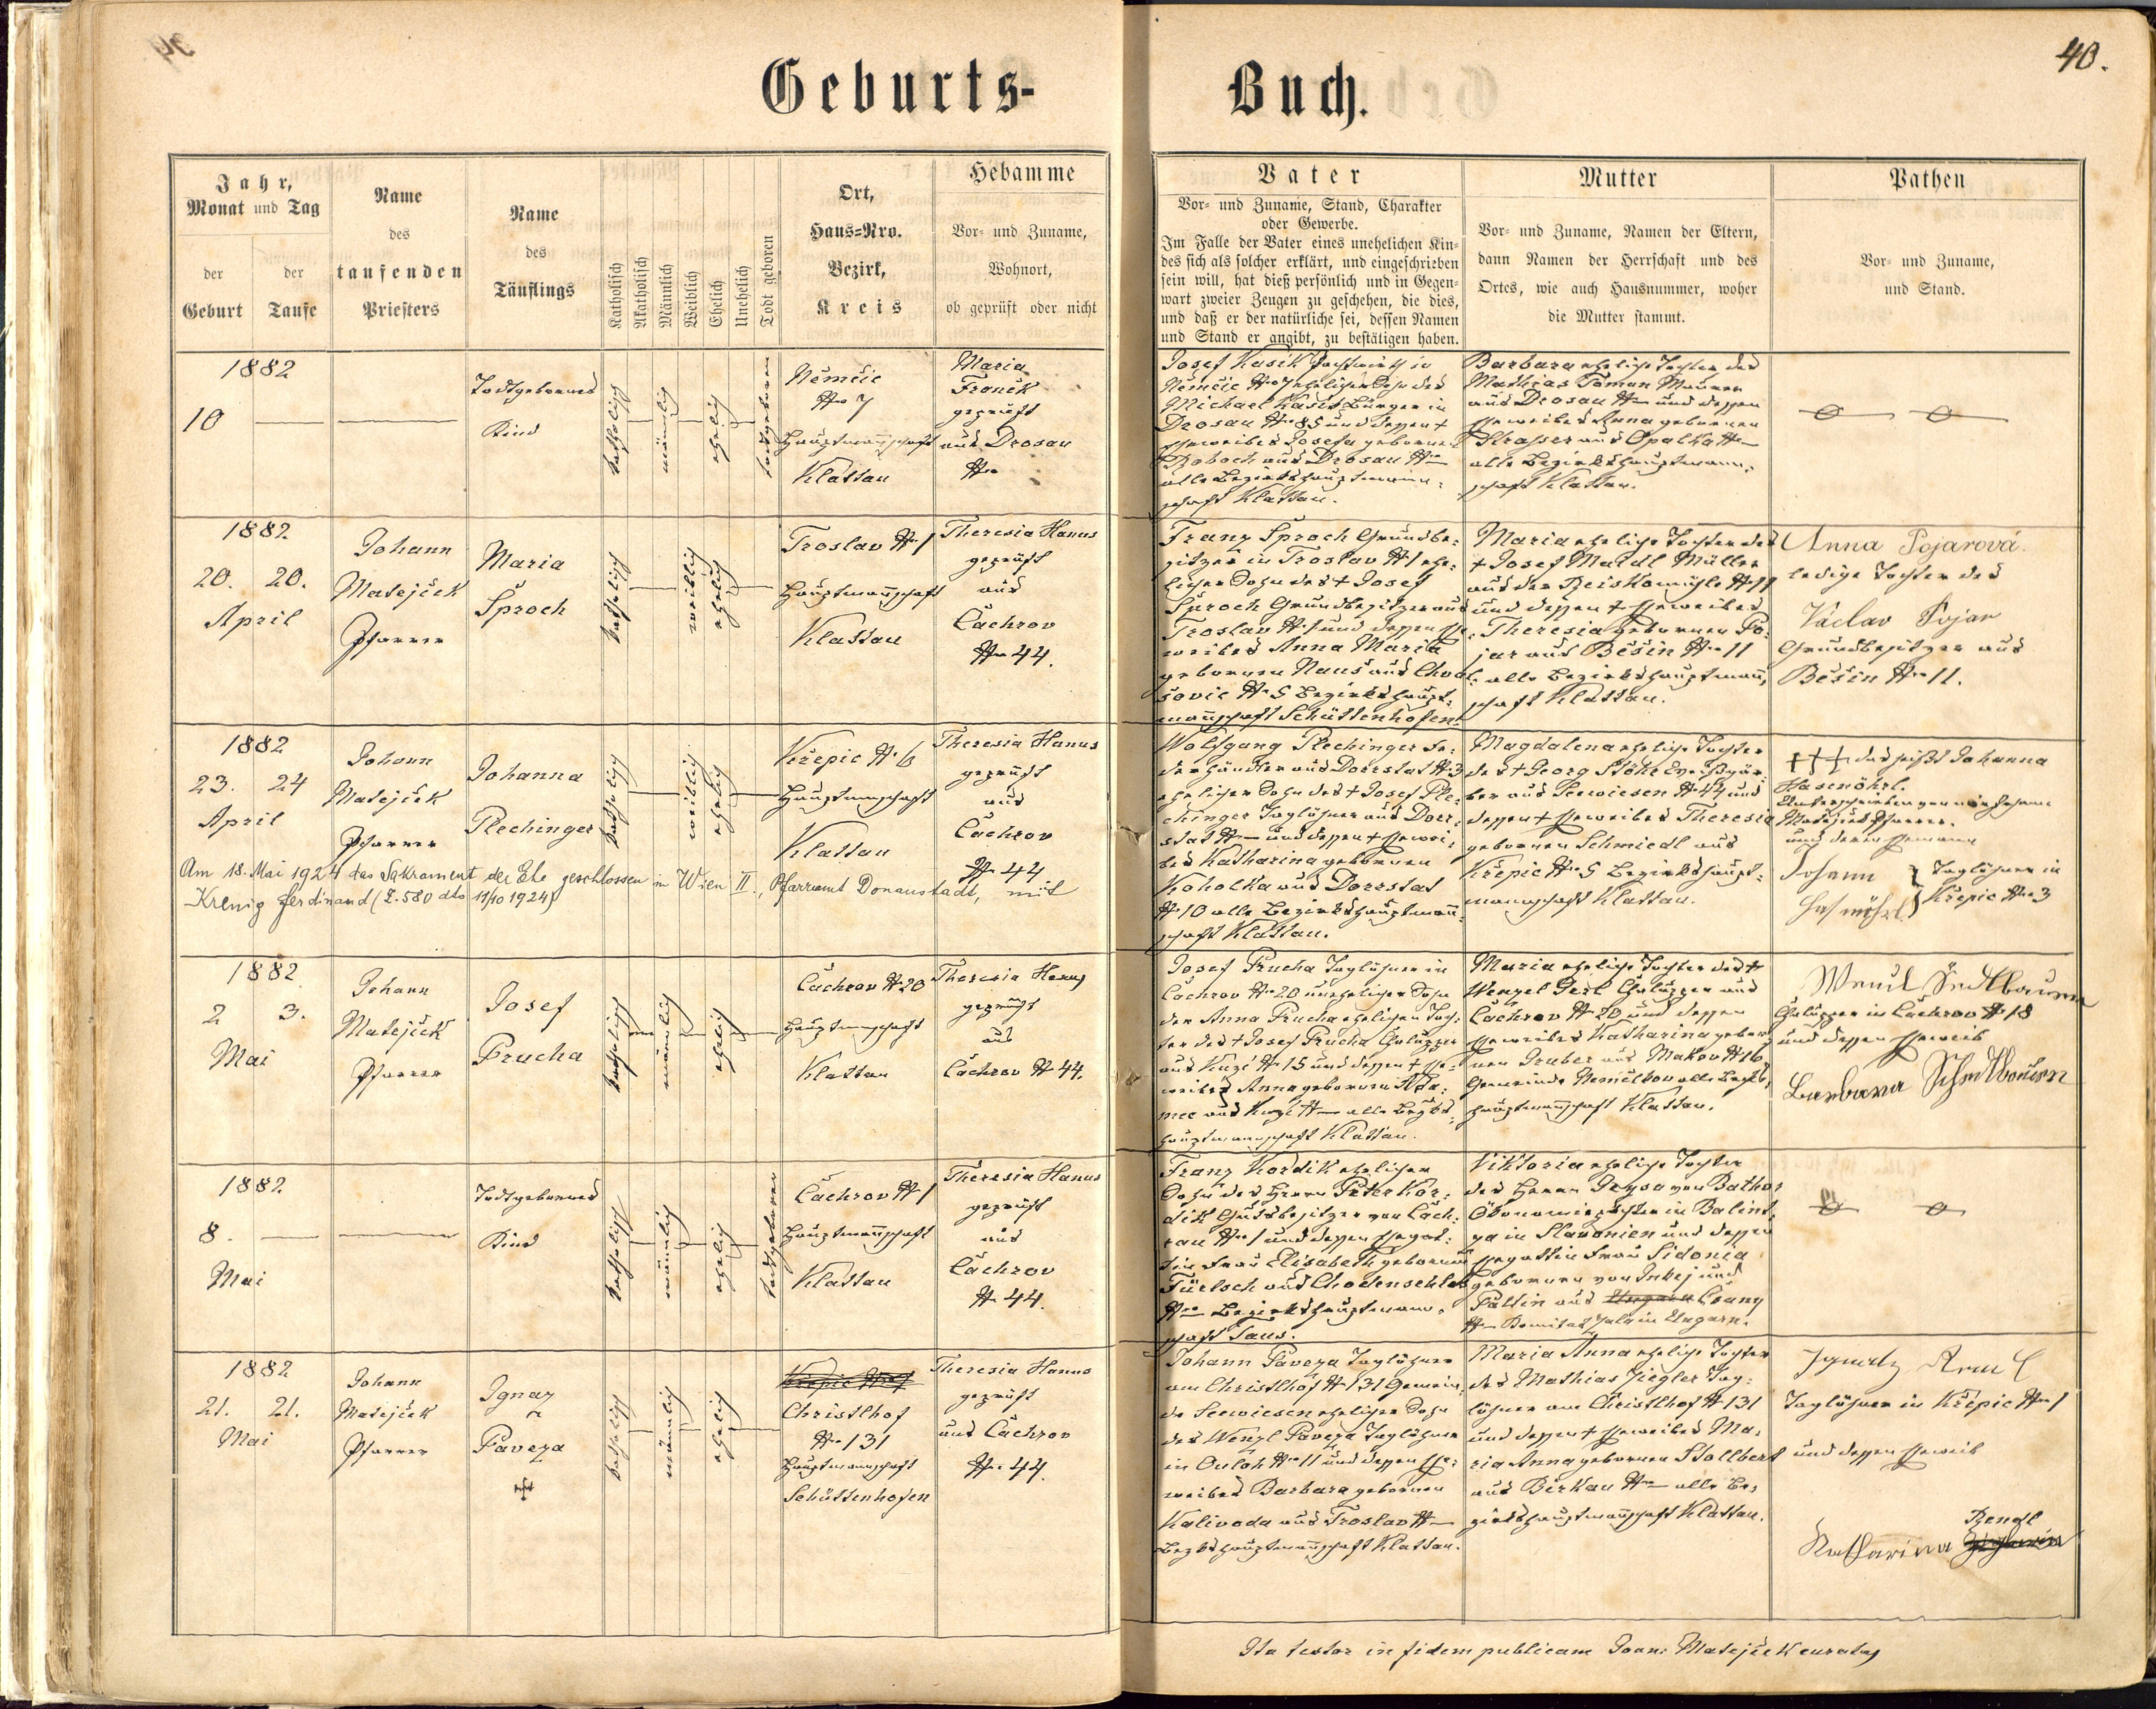 40.
Geburts-
Buch.
Jahr,
Monat und Tag
der
Geburt
der
Taufe
Name
des
taufenden
Priesters
Name
des
Täuflings
Katholisch
Akatholisch
Männlich
Weiblich
Ehelich
Unehelich
Todt geboren
Ort,
Haus-Nro.
Bezirk,
Kreis
Hebamme
Vor- und Zuname,
Wohnort,
ob geprüft oder nicht
Vater
Vor- und Zuname, Stand, Charakter
oder Gewerbe.
Im Falle der Vater eines unehelichen Kin-
des sich als solcher erklärt, und eingeschrieben
sein will, hat dieß persönlich und in Gegen-
wart zweier Zeugen zu geschehen, die dies,
und daß er der natürliche sei, dessen Namen
und Stand er angibt, zu bestätigen haben.
Mutter
Vor- und Zuname, Namen der Eltern,
dann Namen der Herrschaft und des
Ortes, wie auch Hausnummer, woher
die Mutter stammt.
Pathen
Vor- und Zuname,
und Stand.
1882
10
Todtgebornes
Kind
katholisch
männlich
ehelich
todtgeboren
Němčic
Nro 7
Hauptmannschaft
Klattau
Maria
Froněk
geprüft
aus Drosau
Nro
Josef Kasik Pachtwirth in
Němčic Nro 7 ehelicher Sohn des
Michael Kasik Bürger in
Drosau Nro 85 und dessen †
Eheweibes Josefa gebornen
aus Drosau Nro —
alle Bezirkshauptmann-
schaft Klattau.
Barbara eheliche Tochter des
Mathias Toman Maurer
aus Drosau Nro — und dessen
Eheweibes Anna gebornen
Strasser aus Opalka Nro —
alle Bezirkshauptmann-
schaft Klattau.
1882
20. 20.
April
Johann
Matejček
Pfarrer
Maria
Šproch
katholisch
weiblich
ehelich
Troslav Nro 1
Hauptmannschaft
Klattau
Theresia Hanus
geprüft
aus
Čachrov
Nro 44.
Franz Šproch Grundbe-
sitzer in Troslav Nro 1 ehe-
licher Sohn des † Josef
Šproch Grundbesitzer aus
Troslav Nro 1 und dessen Ehe-
weibes Anna Maria
gebornen Nauš aus Chval-
šovic Nro 5 Bezirkshaupt-
mannschaft Schüttenhofen.
Maria eheliche Tochter des
† Josef Maidl Müller
aus der Reiskomühle Nro 11
und dessen † Eheweibes
Theresia gebornen Po-
jar aus Běšin Nro 11
alle Bezirkshauptmann-
schaft Klattau.
Anna Pojarová.
ledige Tochter des
Václav Pojar
Grundbesitzer aus
Běšin Nro 11.
1882
23. 24
April
Johann
Matejček
Pfarrer
Johanna
Plechinger
katholisch
weiblich
ehelich
Křepic Nro 6
Hauptmannschaft
Klattau
Theresia Hanus
geprüft
aus
Čachrov
Nro 44
Am 18. Mai 1924 das Sakrament der Ehe geschlossen in Wien II., Pfarramt Donaustadt, mit
Krenig Ferdinand (Z. 580 dto 11/10 1924)
Wolfgang Plechinger Fe-
derhändler aus Dorrstat Nro 3
ehelicher Sohn des † Josef Ple-
chinger Taglöhner aus Dorr-
stat Nro — und dessen † Ehewei-
bes Katharina gebornen
Koholka aus Dorrstat
Nro 10 alle Bezirkshauptmann-
schaft Klattau.
Magdalena eheliche Tochter
des † Georg Stöhr
aus Seewiesen Nro 44 und
dessen † Eheweibes Theresia
gebornen Schmiedl aus
Křepic Nro 5 Bezirkshaupt-
mannschaft Klattau.
††† das heißt Johanna
Hasenöhrl.
Unterschrieben von mir Johann
Matejček Pfarrer.
und deren Ehemann
Johann Taglöhner in
Hasenöhrl Křepic Nro 3
1882
2 3.
Mai
Johann
Matejček
Pfarrer
Josef
Prucha
katholisch
männlich
ehelich
Čachrov Nro 20
Hauptmannschaft
Klattau
Theresia Hanus
geprüft
aus
Čachrov Nro 44.
Josef Prucha Taglöhner in
Čachrov Nro 20 unehelicher Sohn
der Anna Prucha ehelichen Toch-
ter des † Josef Prucha Chalupper
aus Kunži Nro 15 und dessen † Ehe-
weibes Anna gebornen Ada-
mec aus Nro — alle Bezirks-
hauptmannschaft Klattau.
Maria eheliche Tochter des †
Wenzel Chalupper aus
Čachrov Nro 20 und dessen
Eheweibes Katharina gebor-
nen Gruber aus Makov Nro 16
Gemeinde Nemilkov alle Bezirks-
hauptmannschaft Klattau.
Chalupper in Čachrov Nro 18
und dessen Eheweib
Barbara
1882
8.
Mai
Todtgebornes
Kind
katholisch
männlich
ehelich
todtgeboren
Čachrov Nro 1
Hauptmannschaft
Klattau
Theresia Hanus
geprüft
aus
Čachrov
Nro 44.
Franz Kordik ehelicher
Sohn des Herrn Peter Kor-
dik Gutsbesitzer von Čach-
rau Nro 1 und dessen Ehegat-
tin Frau Elisabeth gebornen
Füelsch aus Chodenschloß
Nro — Bezirkshauptmann-
schaft Taus.
Viktoria eheliche Tochter
des Herrn Geysa von Bathor
Ökonomiepächter in Balint-
ya in Slavonien und dessen
Ehegattin Frau Sidonia
gebornen von Inkej und
Pallin aus Ungarn Csany
Nro — Komitat Zala in Ungarn.
1882
21. 21.
Mai
Johann
Matejček
Pfarrer
Ignaz
Paveza
katholisch
männlich
ehelich
Křepic Nro 1
Christlhof
Nro 131
Hauptmannschaft
Schüttenhofen
Theresia Hanus
geprüft
aus Čachrov
Nro 44.
Johann Paveza Taglöhner
am Christlhof Nro 131 Gemein-
de Seewiesen ehelicher Sohn
des Wenzl Paveza Taglöhner
in Onloh Nro 11 und dessen Ehe-
weibes Barbara gebornen
Kalivoda aus Troslav Nro —
Bezirkshauptmannschaft Klattau.
Maria Anna eheliche Tochter
des Mathias Ziegler Tag-
löhner am Christlhof Nro 131
und dessen † Eheweibes Ma-
ria Anna gebornen Stollbert
aus Birkau Nro — alle Be-
zirkshauptmannschaft Klattau.
Ignatz
Taglöhner in Křepic Nro 1
und dessen Eheweib
Rendl
Katharina
Ita testor in fidem publicam Joann Matejček curatus